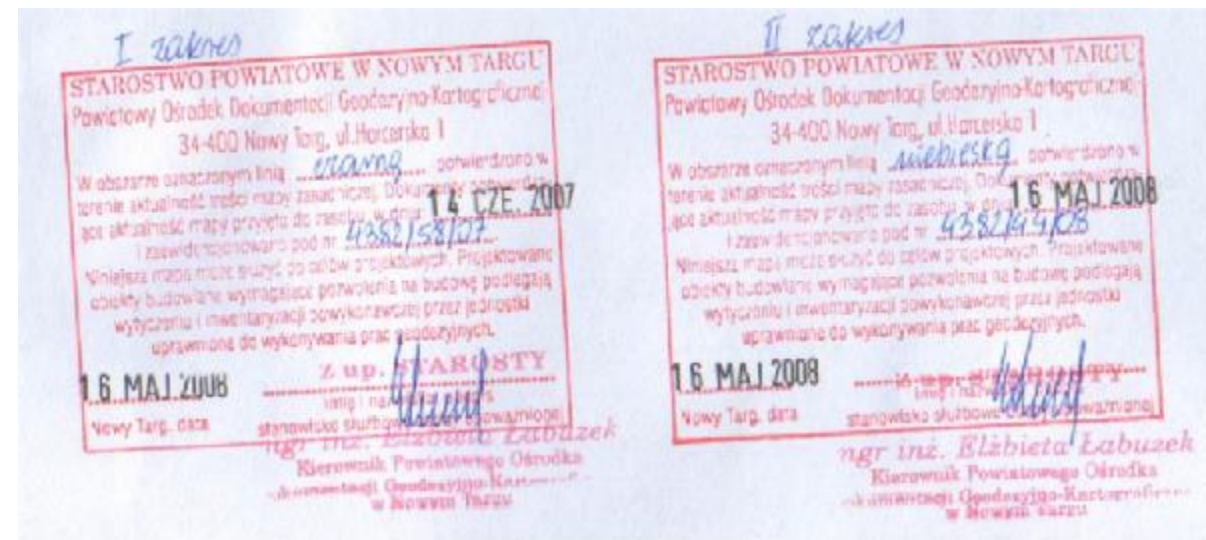 I zakres
STAROSTWO POWIATOWE W NOWYM TARGU
Powiatowy Ośrodek Dokumentacji Geodezyjno-Kartograficznej
34-400 Nowy Targ, ul. Harcerska 1
W obszarze oznaczonym linią czarną potwierdzono w
terenie aktualność treści mapy zasadniczej. Dokumenty potwierdza-
jące aktualność mapy przyjęto do zasobu w dniu 14 CZE. 2007
i zaewidencjonowano pod nr 4382/58/07
Niniejsza mapa może służyć do celów projektowych. Projektowane
obiekty budowlane wymagające pozwolenia na budowę podlegają
wytyczeniu i inwentaryzacji powykonawczej przez jednostki
uprawnione do wykonywania prac geodezyjnych.
Z up. STAROSTY
16 MAJ 2008
imię i
Nowy Targ, data stanowisko służbowe
mgr inż. Elżbieta Łabuzek
Kierownik Powiatowego Ośrodka
Dokumentacji Geodezyjno-
w Nowym Targu
II zakres
STAROSTWO POWIATOWE W NOWYM TARGU
Powiatowy Ośrodek Dokumentacji Geodezyjno-Kartograficznej
34-400 Nowy Targ, ul. Harcerska 1
W obszarze oznaczonym linią niebieską potwierdzono w
terenie aktualność treści mapy zasadniczej.
jące aktualność mapy przyjęto do zasobu w dniu 16 MAJ 2008
i zaewidencjonowano pod nr 4382/44/08
Niniejsza mapa może służyć do celów projektowych. Projektowane
obiekty budowlane wymagające pozwolenia na budowę podlegają
wytyczeniu i inwentaryzacji powykonawczej przez jednostki
uprawnione do wykonywania prac geodezyjnych.
Z up. STAROSTY
16 MAJ 2008
imię i
Nowy Targ, data stanowisko służbowe
mgr inż. Elżbieta Łabuzek
Kierownik Powiatowego Ośrodka
Dokumentacji Geodezyjno-Kartograficznej
w Nowym Targu